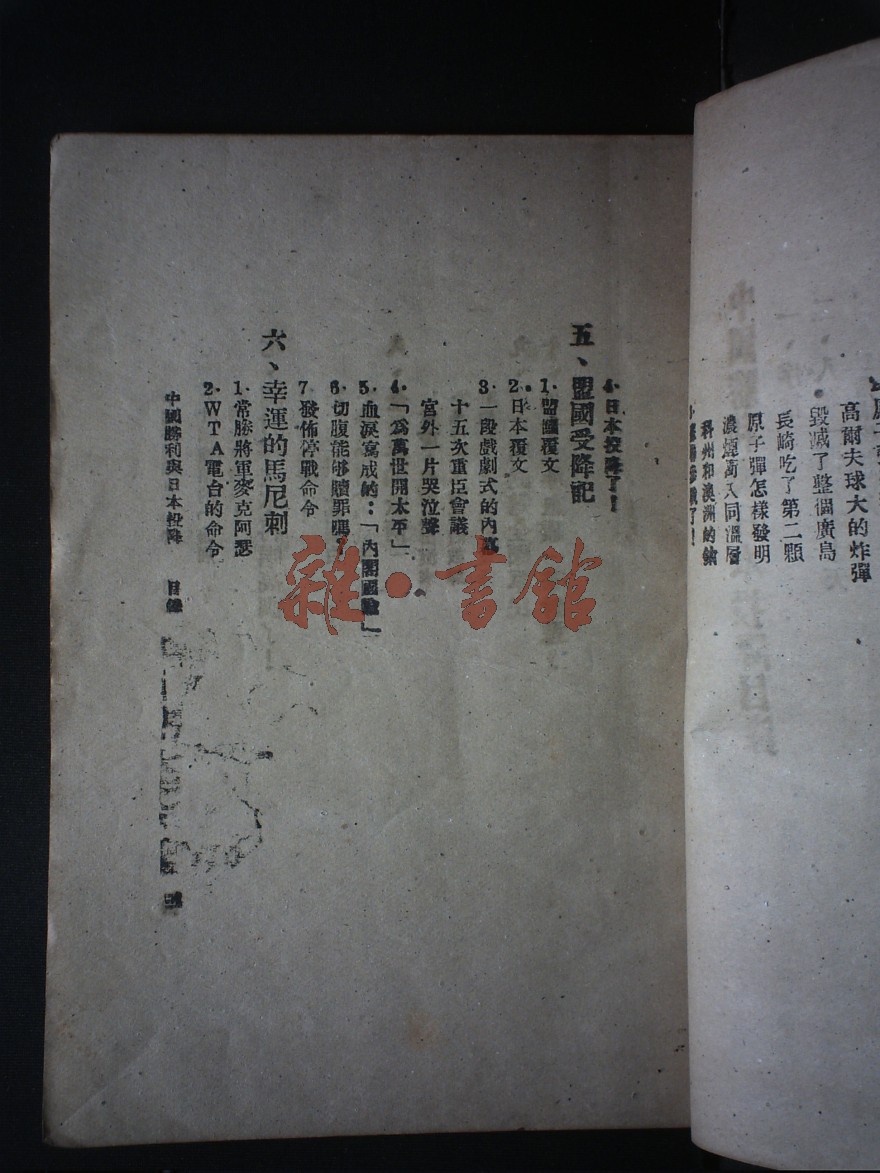 高爾夫球大的炸彈
毀滅了整個廣島
長崎吃了第二顆
原子彈怎樣發明
濃煙衝入同溫層
科州和澳洲的鈾
4·日本投降了！
五、盟國受降記
1·盟國覆文
2·日本覆文
3·一段戲劇式的內幕
十五次重臣會議
宮外一片哭泣聲
4·「爲萬世開太平」
5·血淚寫成的：「內閣
6·切腹能够贖罪嗎？
7 發佈停戰命令
六、幸運的馬尼刺
1·常勝將軍麥克阿瑟
2·WTA電台的命令
中國勝利與日本投降 目錄
三
雜·書館